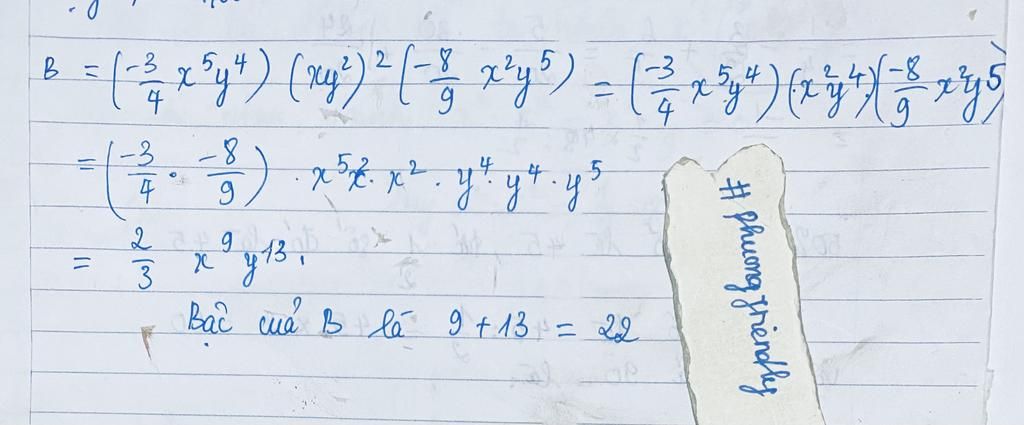 B = (-3/4 x⁵y⁴) (xy²)² (-8/9 x²y⁵) = (-3/4 x⁵y⁴)(x²y⁴)(-8/9 x²y⁵)
= (-3/4 · -8/9) · x⁵x² · x² · y⁴ · y⁴ · y⁵
= 2/3 x⁹y¹³.
Bậc của B là 9 + 13 = 22
#phuongfriendly